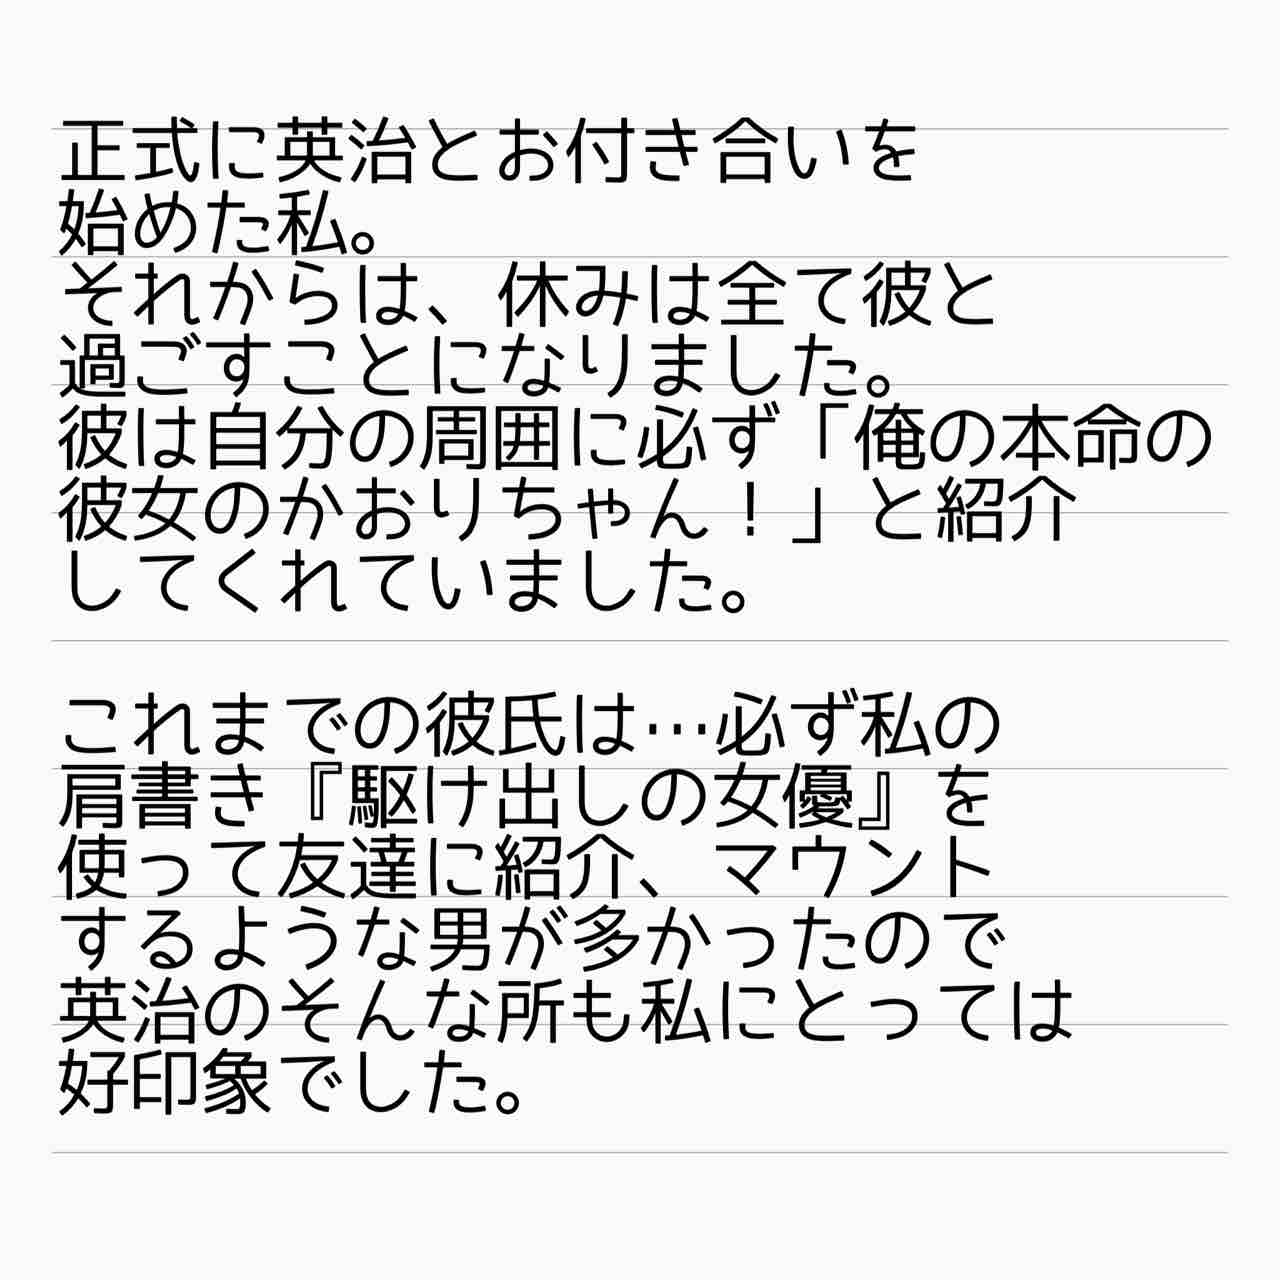 正式に英治とお付き合いを
始めた私。
それからは、休みは全て彼と
過ごすことになりました。
彼は自分の周囲に必ず「俺の本命の
彼女のかおりちゃん！」と紹介
してくれていました。
これまでの彼氏は…必ず私の
肩書き『駆け出しの女優』を
使って友達に紹介、マウント
するような男が多かったので
英治のそんな所も私にとっては
好印象でした。